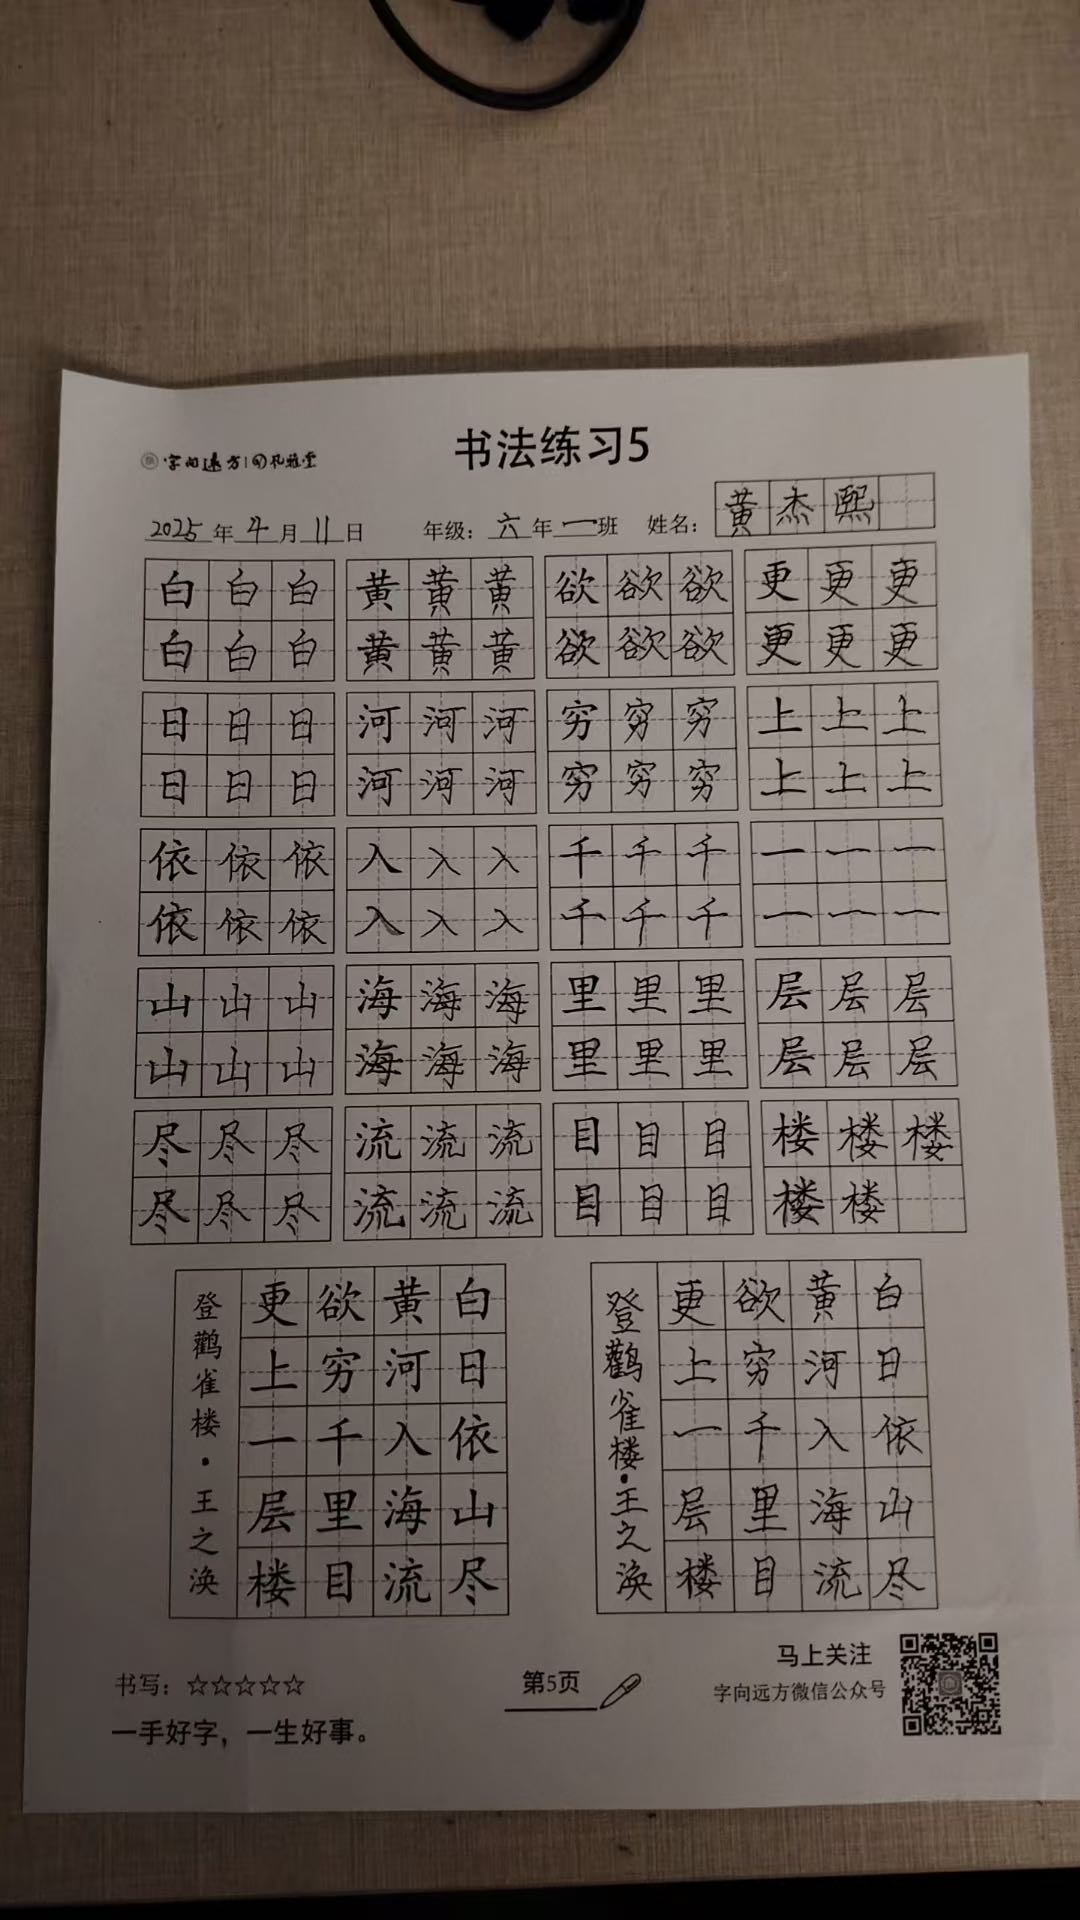 书法练习5
字向远方
2025年4月11日 年级：六年一班 姓名：黄杰熙
白白白 黄黄黄 欲欲欲 更更更
白白白 黄黄黄 欲欲欲 更更更
日日日 河河河 穷穷穷 上上上
日日日 河河河 穷穷穷 上上上
依依依 入入入 千千千 一一一
依依依 入入入 千千千 一一一
山山山 海海海 里里里 层层层
山山山 海海海 里里里 层层层
尽尽尽 流流流 目目目 楼楼楼
尽尽尽 流流流 目目目 楼楼
白日依山尽
黄河入海流
欲穷千里目
更上一层楼
登鹳雀楼·王之涣
白日依山尽
黄河入海流
欲穷千里目
更上一层楼
登鹳雀楼·王之涣
书写：☆☆☆☆☆
一手好字，一生好事。
第5页
马上关注
字向远方微信公众号